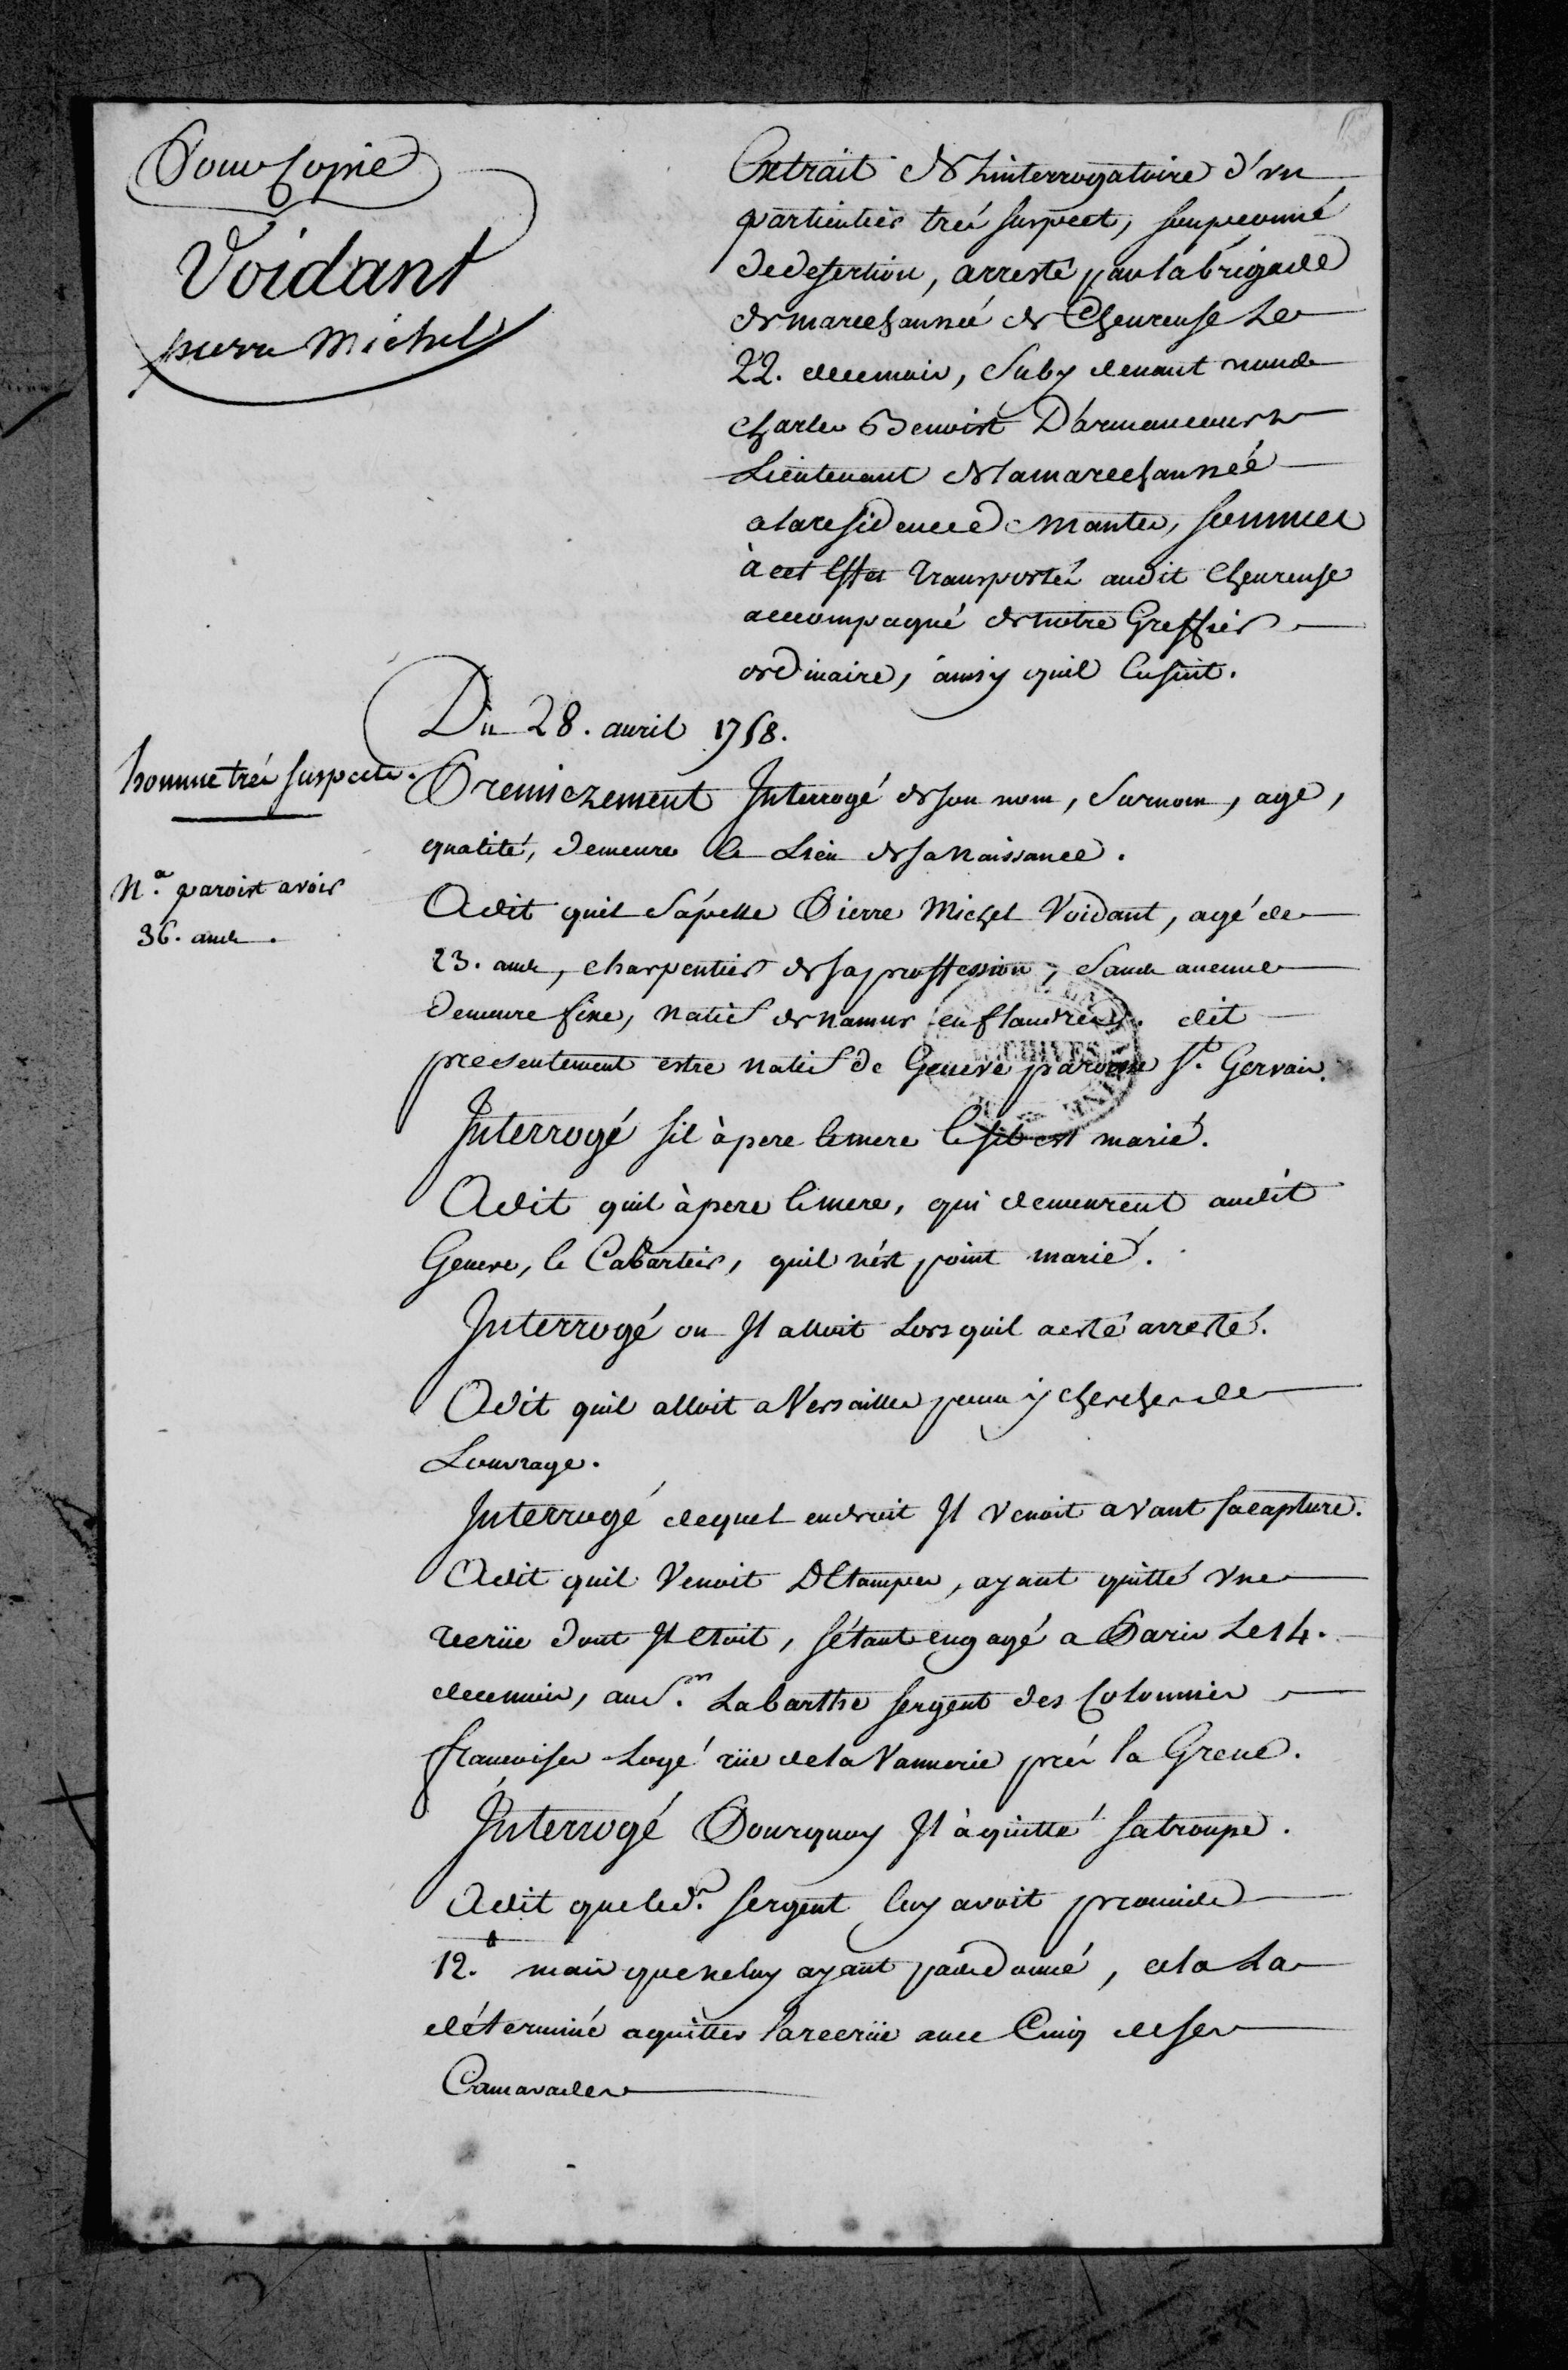 Pour Copie
Voidant
pierre Michel
Extrait de Linterrogatoire d'un
particulier trés suspect, soupconné
de desertion, arresté par la brigade
de marechaussée de Chevreuse Le
22. de ce mois, Suby devant nous
Charles Benoist Darmancourt
Lieutenant de la marechaussée
a la residence de Mantes, sommes
à cet Effet transportés audit Chevreuse
accompagné de notre Greffier
ordinaire, ainsy quil Ensuit.
Du 28. avril 1758.
homme trés suspecte.
Premierement Interrogé de son nom, Surnom, age,
qualité, demeure & Lieu de sa Naissance.
Na. paroist avoir
36. ans.
A dit quil S'apelle Pierre Michel Voidant, agé de
23. ans, charpentier de sa proffession, Sans aucune
demeure fixe, natif de namur en flandres, dit
presentement estre natif de Geneve paroisse St. Gervais.
Interrogé sil à pere & mere & sil est marié.
A dit quil à pere & mere, qui demeurent audit
Geneve, & Cabartier, quil n'est point marié.
Interrogé ou Il alloit Lors quil a esté arresté.
A dit quil alloit a Versailles pour y chercher de
Louvrage.
Interrogé de quel endroit Il venoit avant sa capture.
A dit quil Venoit DEtampes, ayant quitté vne
recrüe dont Il Etoit, s'étant engagé a Paris Le 14.
de ce mois, au Sr. Labarthe sergent des Colonnies
francoises Logé rüe de la Vannerie prés la Greve.
Interrogé Pourquoy Il à quitté sa troupe.
A dit que led. sergent luy avoit promis
12.# mais que ne luy ayant pas donné, cela La
déterminé a quitter la recrüe avec Cinq de ses
Camarades